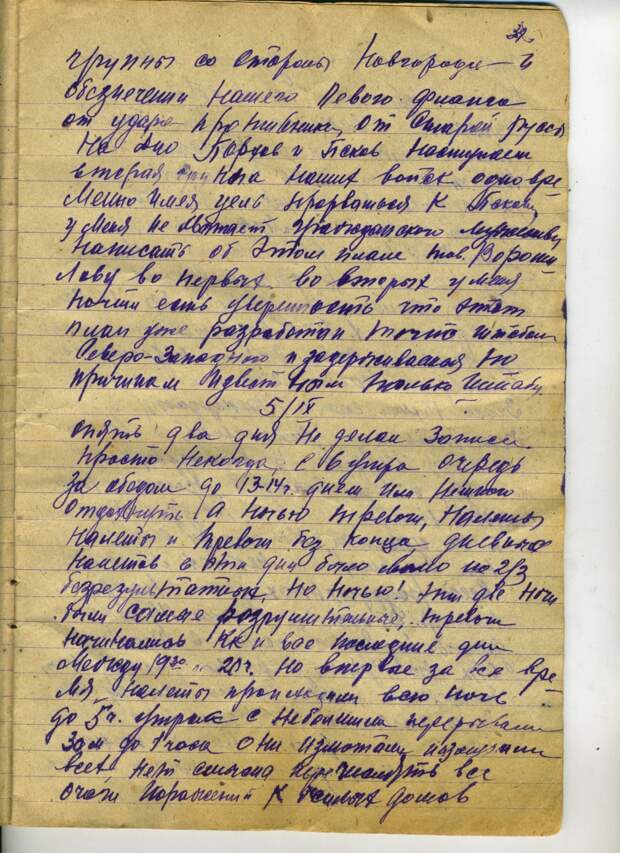 39.
группы со стороны Новгорода и
обезпечении нашего левого фланга
от удара противника, от Старой Руссы
На Дно Порхов и Псков наступает
вторая группа наших войск одновре
менно имея цель прорваться к Пскову
у меня не хватает гражданского мужества
написать об этом плане тов. Вороши
лову во первых, во вторых у меня
почти есть уверенность что этот
план уже разработан точно штабом
Северо-Западного и задерживается по
причинам известным только Штабу.
5/IX
опять два дня не делал записи
просто некогда, с 6 утра очередь
за обедом до 13-14 ч. днем или немного
отдохнуть а ночью тревоги, налеты
налеты и тревоги без конца дневные
налетов в эти дни было мало по 2/3
безрезультатных, но ночью! эти две ночи
были самые разрушительные, тревоги
начинались как и все последние дни
между 19³⁰ и 20 ч. Но впервые за все вре-
мя налеты происходили всю ночь
до 5 ч. утра с небольшими перерывами
до 1 часа они измотали
всех, нет смысла перечислять все
очаги поражений жилых домов